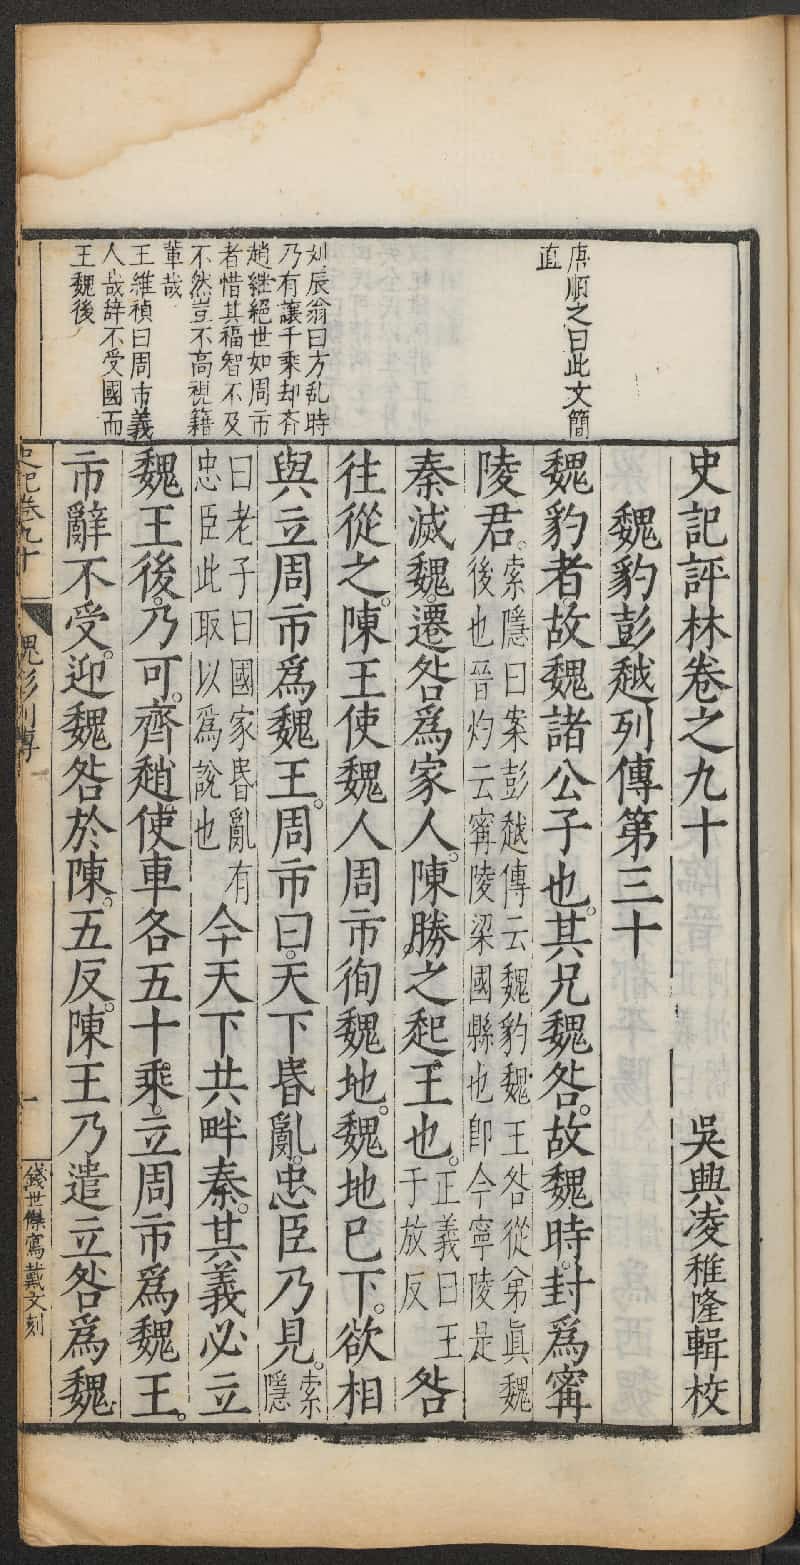 唐順之曰此文簡
直
刘辰翁曰方乱時
乃有讓千乘却齐
趙継絕世如周市
者惜其福智不及
不然豈不高視籍
軰哉
王維禎曰周市義
人哉辞不受國而
王魏後
史記評林卷之九十 吳興凌稚隆輯校
魏豹彭越列傳第三十
魏豹者。故魏諸公子也。其兄魏咎。故魏時。封爲寗
陵君。索隱曰案彭越傳云魏豹魏王咎從弟眞魏後也晉灼云寗陵梁國縣也卽今寧陵是
秦滅魏。遷咎爲家人。陳勝之起王也。正義曰王于放反咎
往從之。陳王使魏人周市徇魏地。魏地已下。欲相
與立周市爲魏王。周市曰。天下昬亂。忠臣乃見。索隱
曰老子曰國家昬亂有忠臣此取以爲說也今天下共畔秦。其義必立
魏王後。乃可。齊趙使車各五十乘。立周市爲魏王。
市辭不受。迎魏咎於陳。五反。陳王乃遣立咎爲魏
史記卷九十 魏彭列傳 一 錢世傑寫戴文刻